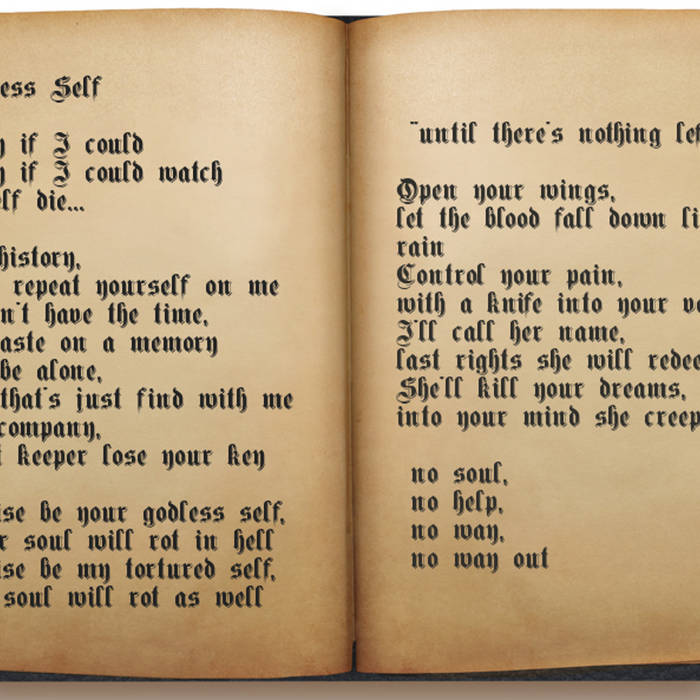 ess Self
y if I could
y if I could watch
elf die...
history,
repeat yourself on me
n't have the time,
aste on a memory
be alone,
that's just find with me
company,
keeper lose your key
ise be your godless self,
r soul will rot in hell
ise be my tortured self,
soul will rot as well
"until there's nothing lef
Open your wings,
let the blood fall down li
rain
Control your pain,
with a knife into your ve
I'll call her name,
last rights she will redee
She'll kill your dreams,
into your mind she creep
no soul,
no help,
no way,
no way out